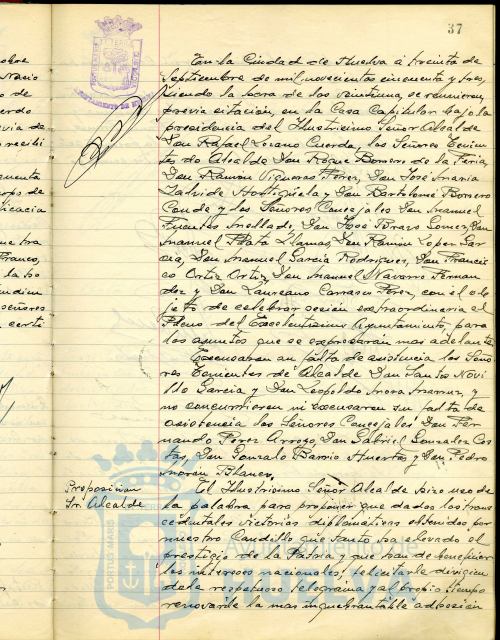 37
En la Ciudad de Huelva a treinta de
Septiembre de mil novecientos cincuenta y tres,
siendo la hora de las veintiuna, se reunieron,
previa citación, en la Casa Capitular bajo la
presidencia del Ilustrísimo Señor Alcalde
Don Rafael Lozano Cuerda, los Señores Tenien
tes de Alcalde Don Roque Borrero de la Feria,
Don Ramón Vigueras Pérez, Don José María
Zalvide Hortigüela y Don Bartolomé Borrero
Conde y los Señores Concejales Don Manuel
Fuentes Don José Brazo Gomez, Don
Manuel Plata Llamas, Don Ramón López Gar
cia, Don Manuel García Rodriguez, Don Francis
co Ortiz Ortiz, Don Manuel Navarro Fernan
dez y Don Laureano Carrasco Pérez, con el ob
jeto de celebrar sesión extraordinaria el
Pleno del Excelentísimo Ayuntamiento, para
los asuntos que se expresaran mas adelante.
Excusaron su falta de asistencia los Seño
res Tenientes de Alcalde Don Santos Novi
llo García y Don Leopoldo y
no concurrieron ni excusaron su falta de
asistencia los Señores Concejales Don Fer
nando Pérez Arroyo, Don Gabriel Gonzalez Cos
tas, Don Gonzalo Barrio Huertas y Don Pedro
Morón Blanco.
Proposicion
Sr. Alcalde
El Ilustrísimo Señor Alcalde hizo uso de
la palabra para proponer que dados los trans
cedentales victorias diplomaticas obtenidas por
nuestro Caudillo que tanto ha elevado el
prestigio de la Patria, y que han de beneficiar
los intereses nacionales, felicitarle dirigien
dole respetuoso telegrama y al propio tiempo
renovarle la mas inquebrantable adhesión
PORTUS MARIS
HUELVA